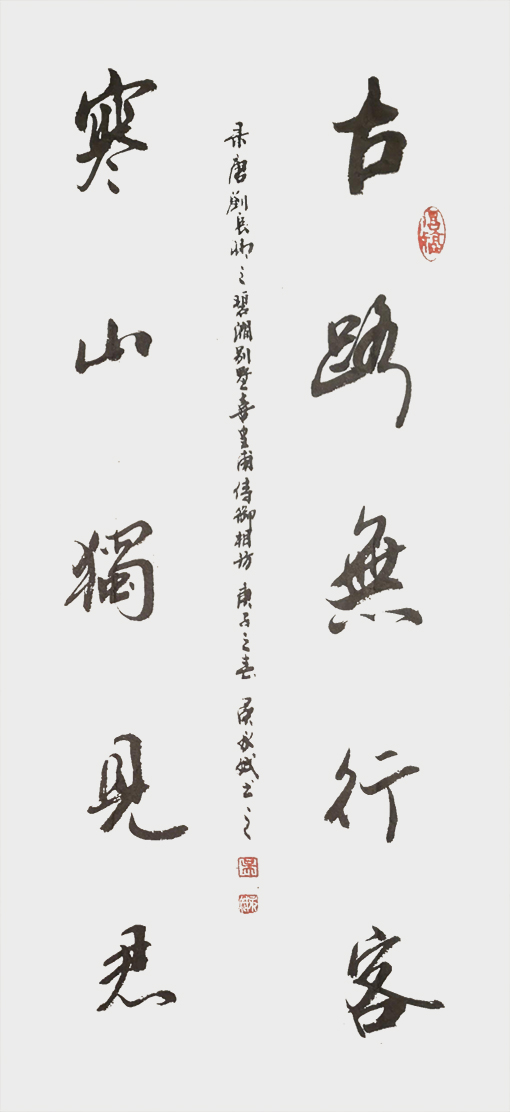 古路無行客
寒山獨見君
录唐劉長卿之碧澗別墅喜皇甫侍御相訪 庚子之春 书之